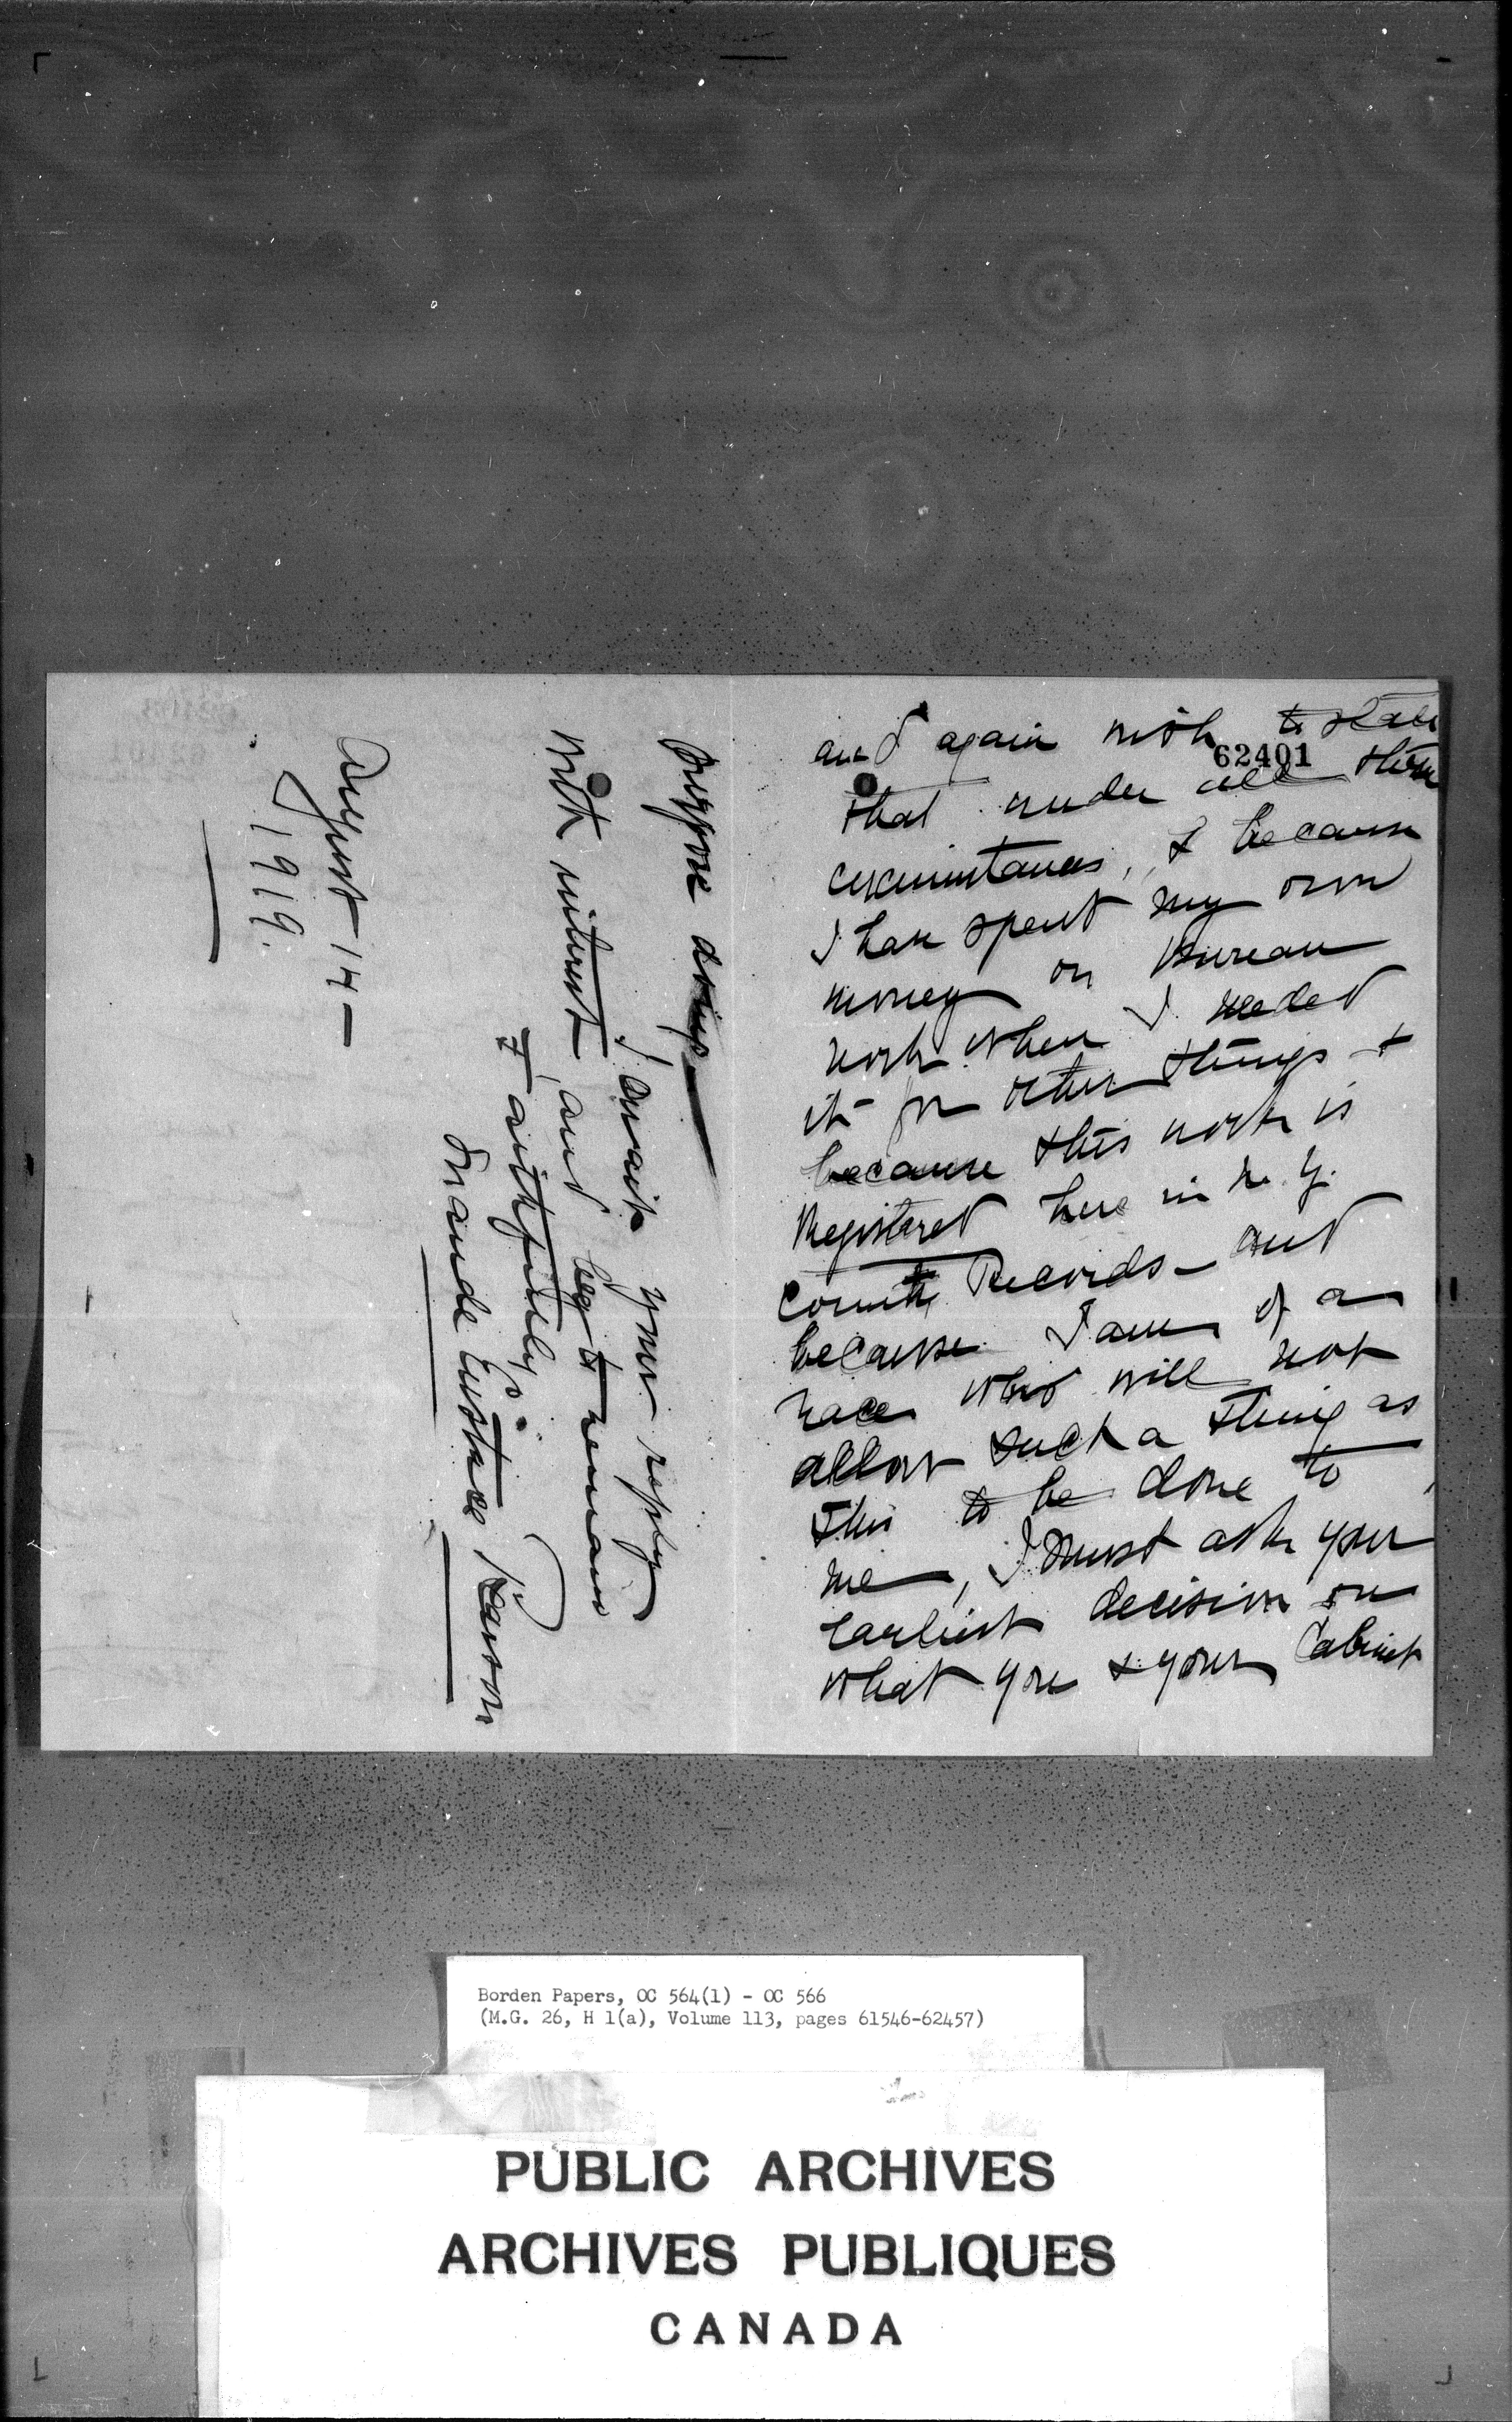 62401
and again wish to state
that under all these
circumstances, & because
I have spent my own
money on Bureau
work when I needed
it for other things &
because this work is
Registered here in N.Y.
County Records – and
because I am of a
race who will not
allow such a thing as
this to be done to
me, I must ask your
earliest decision on
what you & your Cabinet
purpose doing —
I await your reply
with interest, and beg to remain
Faithfully
Maude Eustace
August 14 —
1919.
Borden Papers, OC 564(1) - OC 566
(M.G. 26, H 1(a), Volume 113, pages 61546-62457)
PUBLIC ARCHIVES
ARCHIVES PUBLIQUES
CANADA